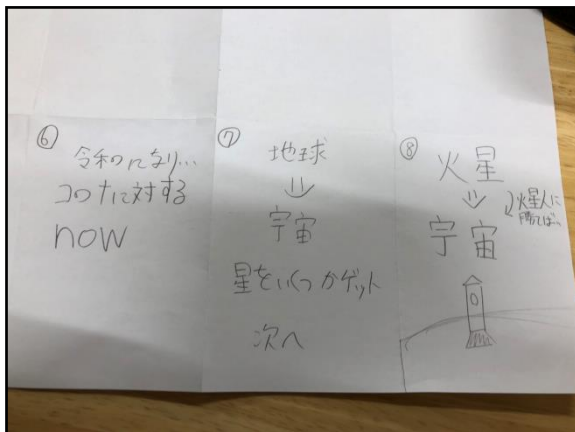 ⑥
令和になり...
コロナに対する
now
⑦
地球
⇓
宇宙
星をいくつかゲット
次へ
⑧
火星
⇓
火星人に
勝てば...
宇宙